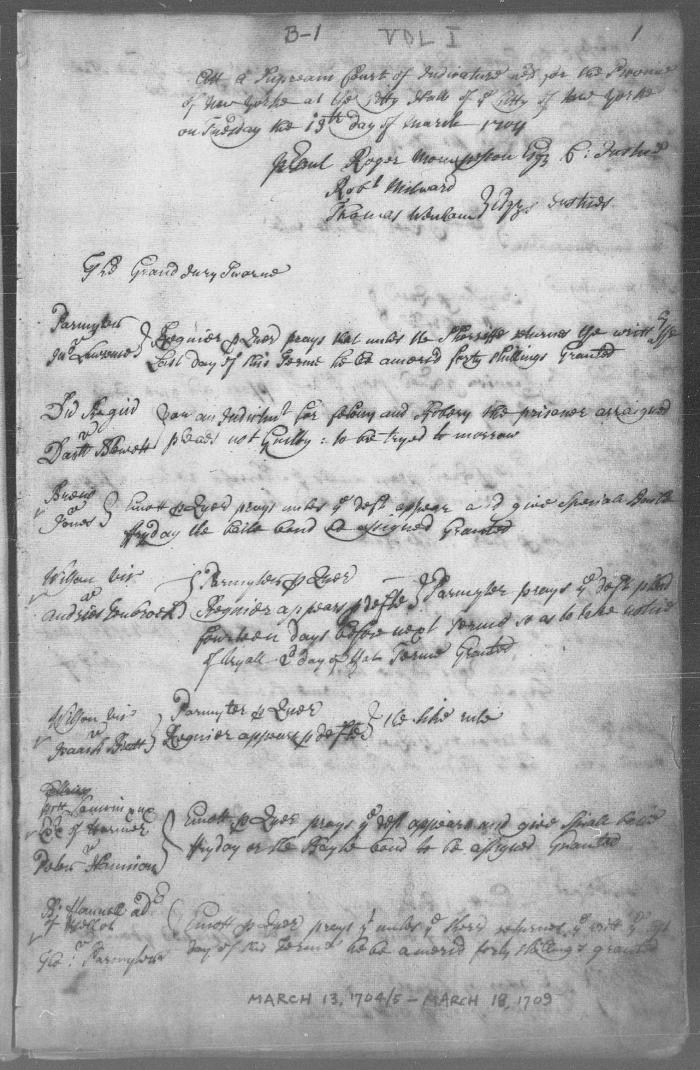 B-1 VOL I 1
Att a Supream Court of Judicature held for the Province
of New Yorke at the Citty Hall of ye Citty of New Yorke
on Tuesday the 13th day of March 1704
Roger Mompesson Esqr C: Justice
Robt Milward
Thomas Wenham } Esqrs Justices
The Grand Jury Sworne
Parmyter
Regnier p Quer prays that unles the Sherriffe returns the writt ye
Last day of this Terme he be amercd forty shillings Granted
Dn Regid v an Indictmt for felony and Robery the prisoner arraigned
Bartt pleads not Guilty: to be tryed to morrow
v Jones } Emott p Quer prays unles ye deft appear and give speciale Baile
fryday the baile bond be assigned Granted
Wilson vis } Parmyter p Quer
v Andries } Regnier appears p defte } Parmyter prays ye deft plead
fourteen Days before next Terme so as to take notice
of tryall 2d day of that Terme Granted
Wilson vis } Parmyter p Quer
v Isaack } Regnier appears p defte } the like rule
Ex of Harmer
v
Peter
Emott p Quer prays ye deft appeare and give spiall baile
fryday or the Bayle bond to be assigned Granted
v
Geo: Parmyter
Emott p Quer prays yt unles ye sherr returnes ye writt ye
day of this Terme he be amercd forty shillings granted
MARCH 13, 1704/5 - MARCH 18, 1709